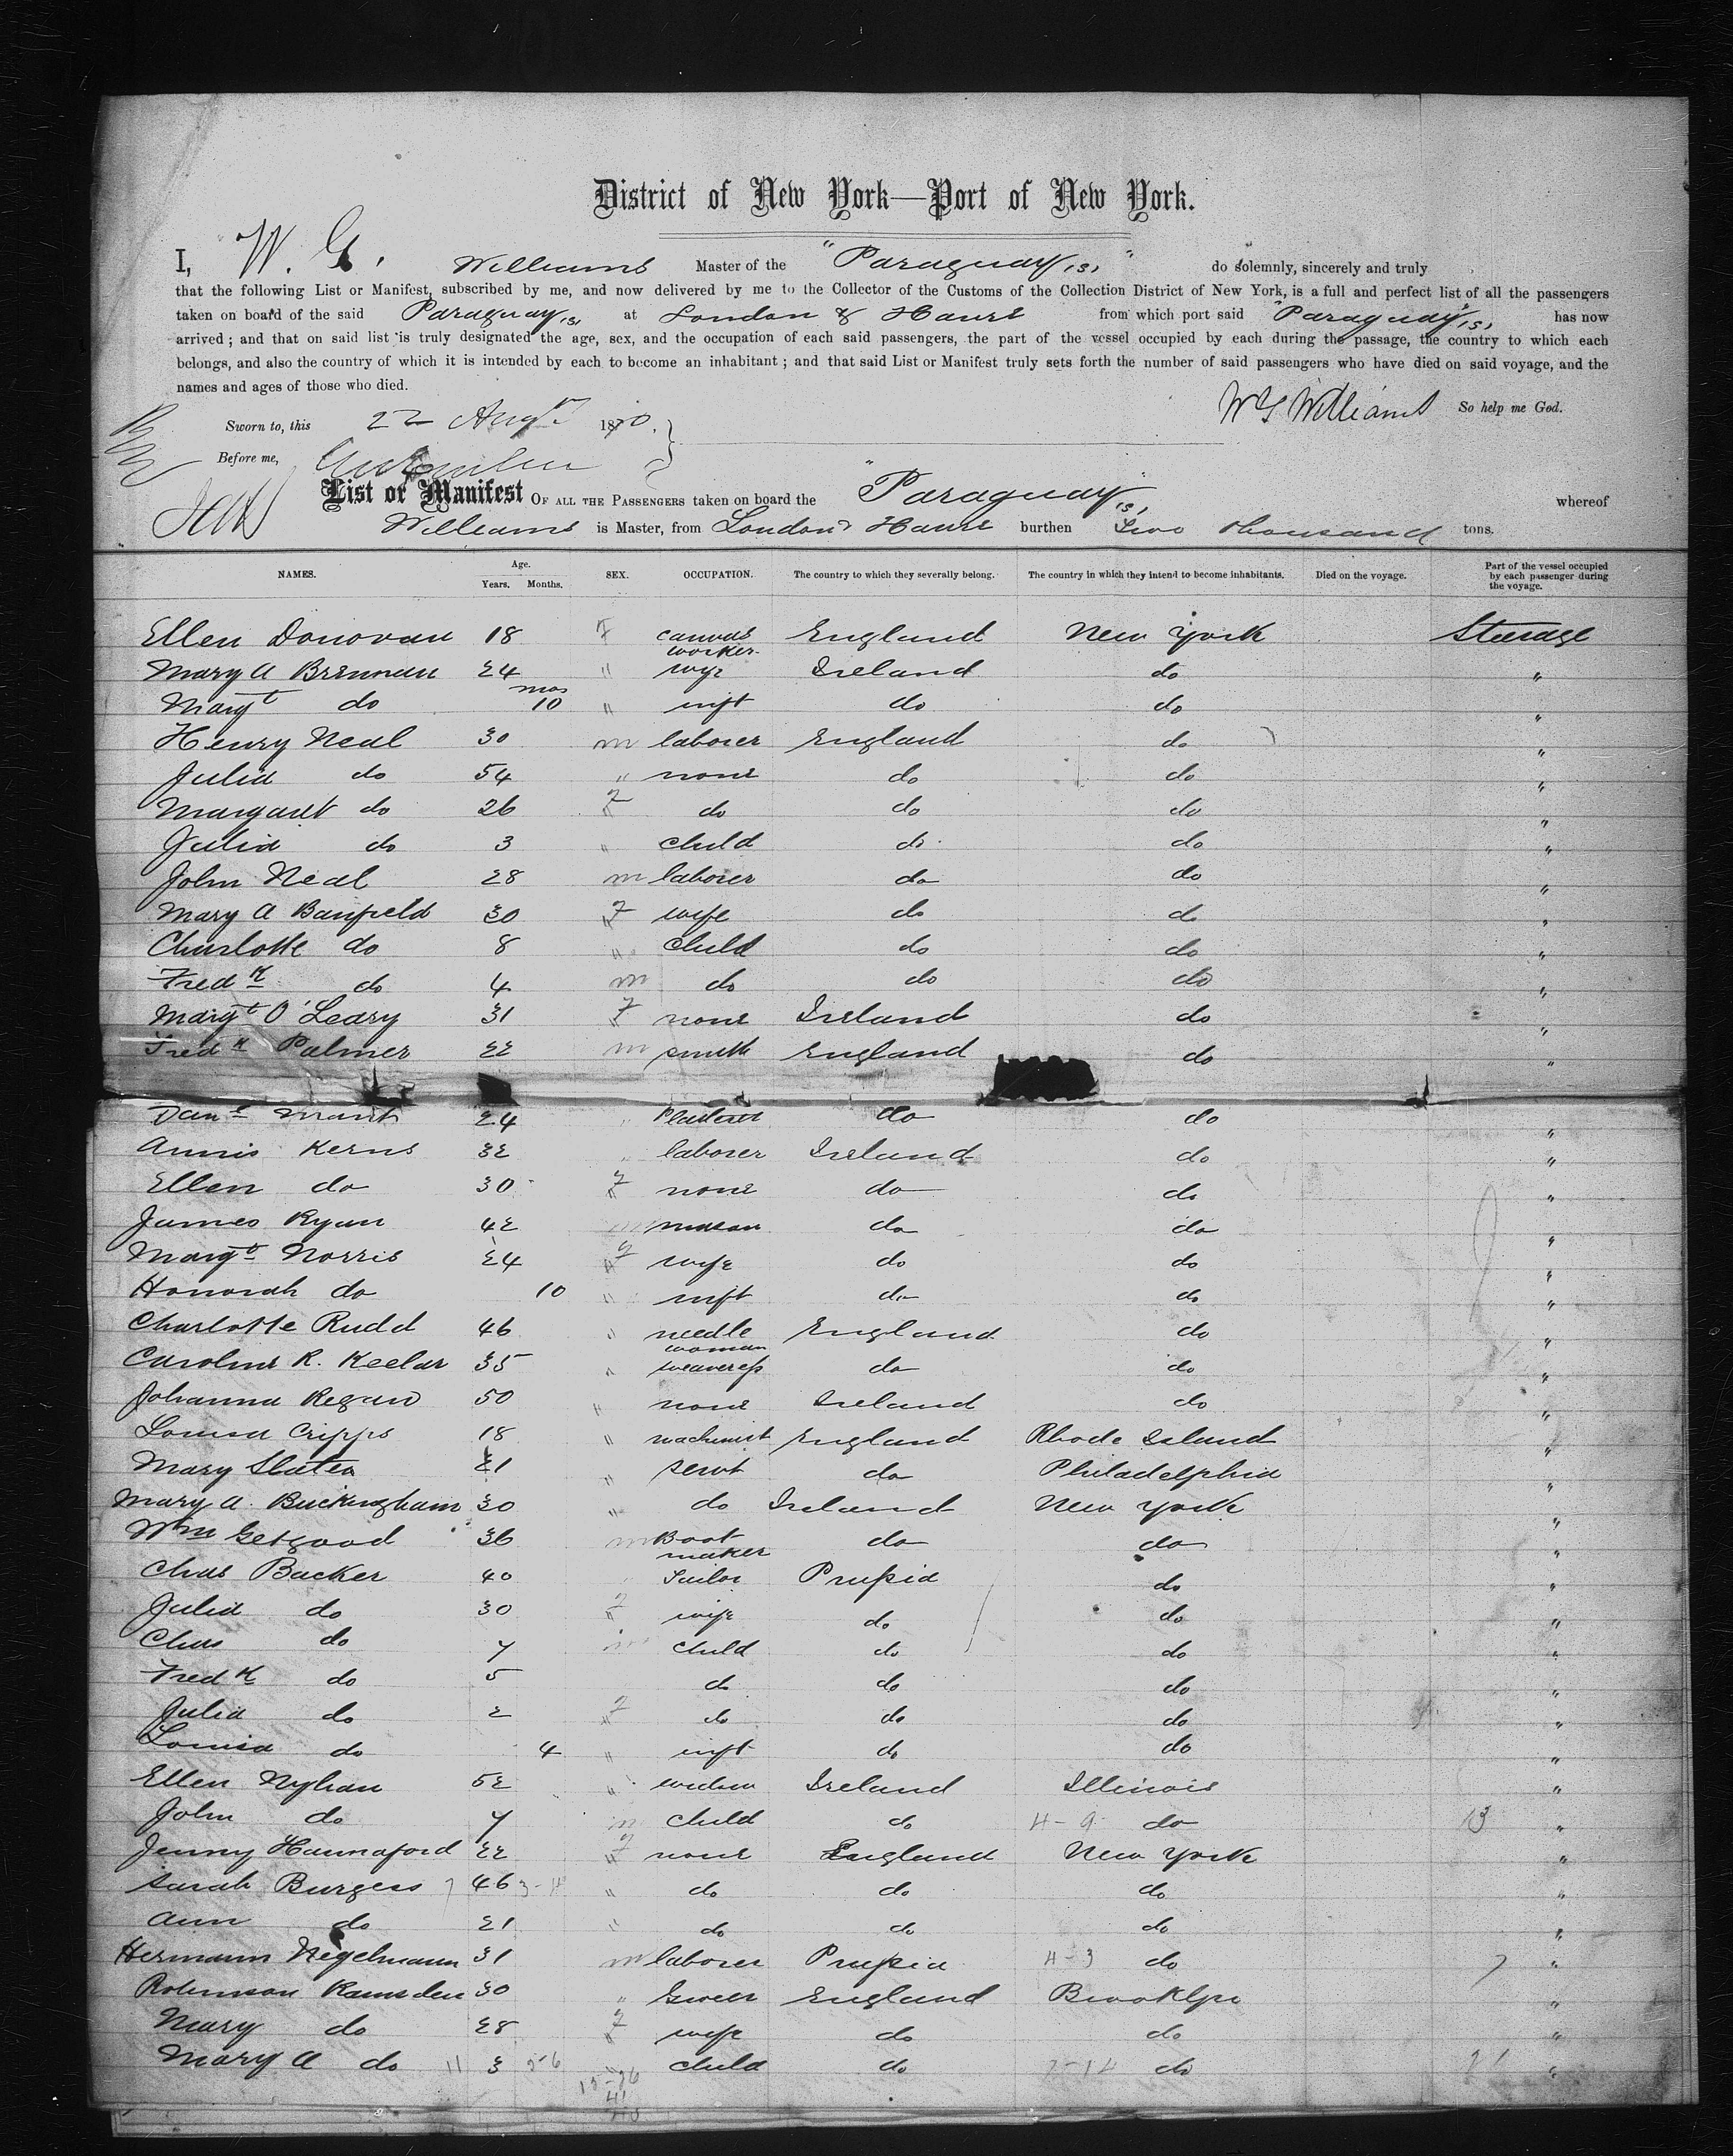 District of New York—Port of New York.
I, W. G. Williams Master of the "Paraguay" (s) do solemnly, sincerely and truly
that the following List or Manifest, subscribed by me, and now delivered by me to the Collector of the Customs of the Collection District of New York, is a full and perfect list of all the passengers
taken on board of the said Paraguay (s) at London & Havre from which port said "Paraguay" (s) has now
arrived; and that on said list is truly designated the age, sex, and the occupation of each said passengers, the part of the vessel occupied by each during the passage, the country to which each
belongs, and also the country of which it is intended by each to become an inhabitant; and that said List or Manifest truly sets forth the number of said passengers who have died on said voyage, and the
names and ages of those who died.
W G Williams So help me God.
Sworn to, this 22 Augt 1870.
Before me,
List or Manifest OF ALL THE PASSENGERS taken on board the "Paraguay" (s) whereof
Williams is Master, from London & Havre burthen Two thousand tons.
NAMES. Age. Years. Months. SEX. OCCUPATION. The country to which they severally belong. The country in which they intend to become inhabitants. Died on the voyage. Part of the vessel occupied by each passenger during the voyage.
Ellen Donovan 18 F canvas worker England New York Steerage
Mary A Brennan 24 " wife Ireland do "
Margt do mos 10 " inft do do "
Henry Neal 30 m laborer England do "
Julia do 54 " none do do "
Margaret do 26 F do do do "
Julia do 3 " child do do "
John Neal 28 m laborer do do "
Mary A Banfield 30 F wife do do "
Charlotte do 8 " child do do "
Fredk do 4 m do do do "
Margt O'Leary 31 F none Ireland do "
Fredk Palmer 22 m smith England do "
Danl Mant 24 " Plasterer do do "
Annis Kerns 32 " laborer Ireland do "
Ellen do 30 F none do do "
James Ryan 42 m mason do do "
Margt Norris 24 F wife do do "
Honorah do 10 " inft do do "
Charlotte Rudd 46 " needle woman England do "
Caroline R. Keelar 35 " weaveress do do "
Johanna Regan 50 " none Ireland do "
Louisa Cripps 18 " machinist England Rhode Island "
Mary Slater 21 " servt do Philadelphia "
Mary A. Buckingham 30 " do Ireland New York "
Wm Getgood 36 m Boot maker do do "
Chas Backer 40 " Tailor Prussia do "
Julia do 30 F wife do do "
Chas do 7 m child do do "
Fredk do 5 do do do "
Julia do 2 F do do do "
Louisa do 4 " inft do do "
Ellen Nyhan 52 " widow Ireland Illinois "
John do 7 m child do 4-9 do 13 "
Jenny Hannaford 22 F none England New York "
Sarah Burgess 46 " do do do "
Ann do 21 " do do do "
Hermann Negelmann 31 m laborer Prussia 4-3 do 7 "
Robinson Ramsden 30 " Grocer England Brooklyn "
Mary do 28 F wife do do "
Mary A do 11 3 5-6 " child do do "